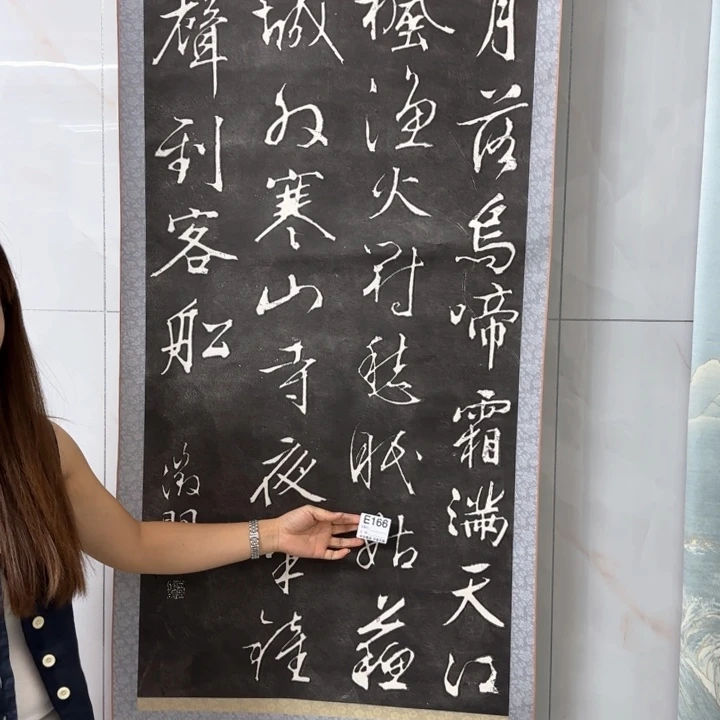 月落烏啼霜滿天江
楓漁火對愁眠姑蘇
城外寒山寺夜半鐘
聲到客船
徵明
E166